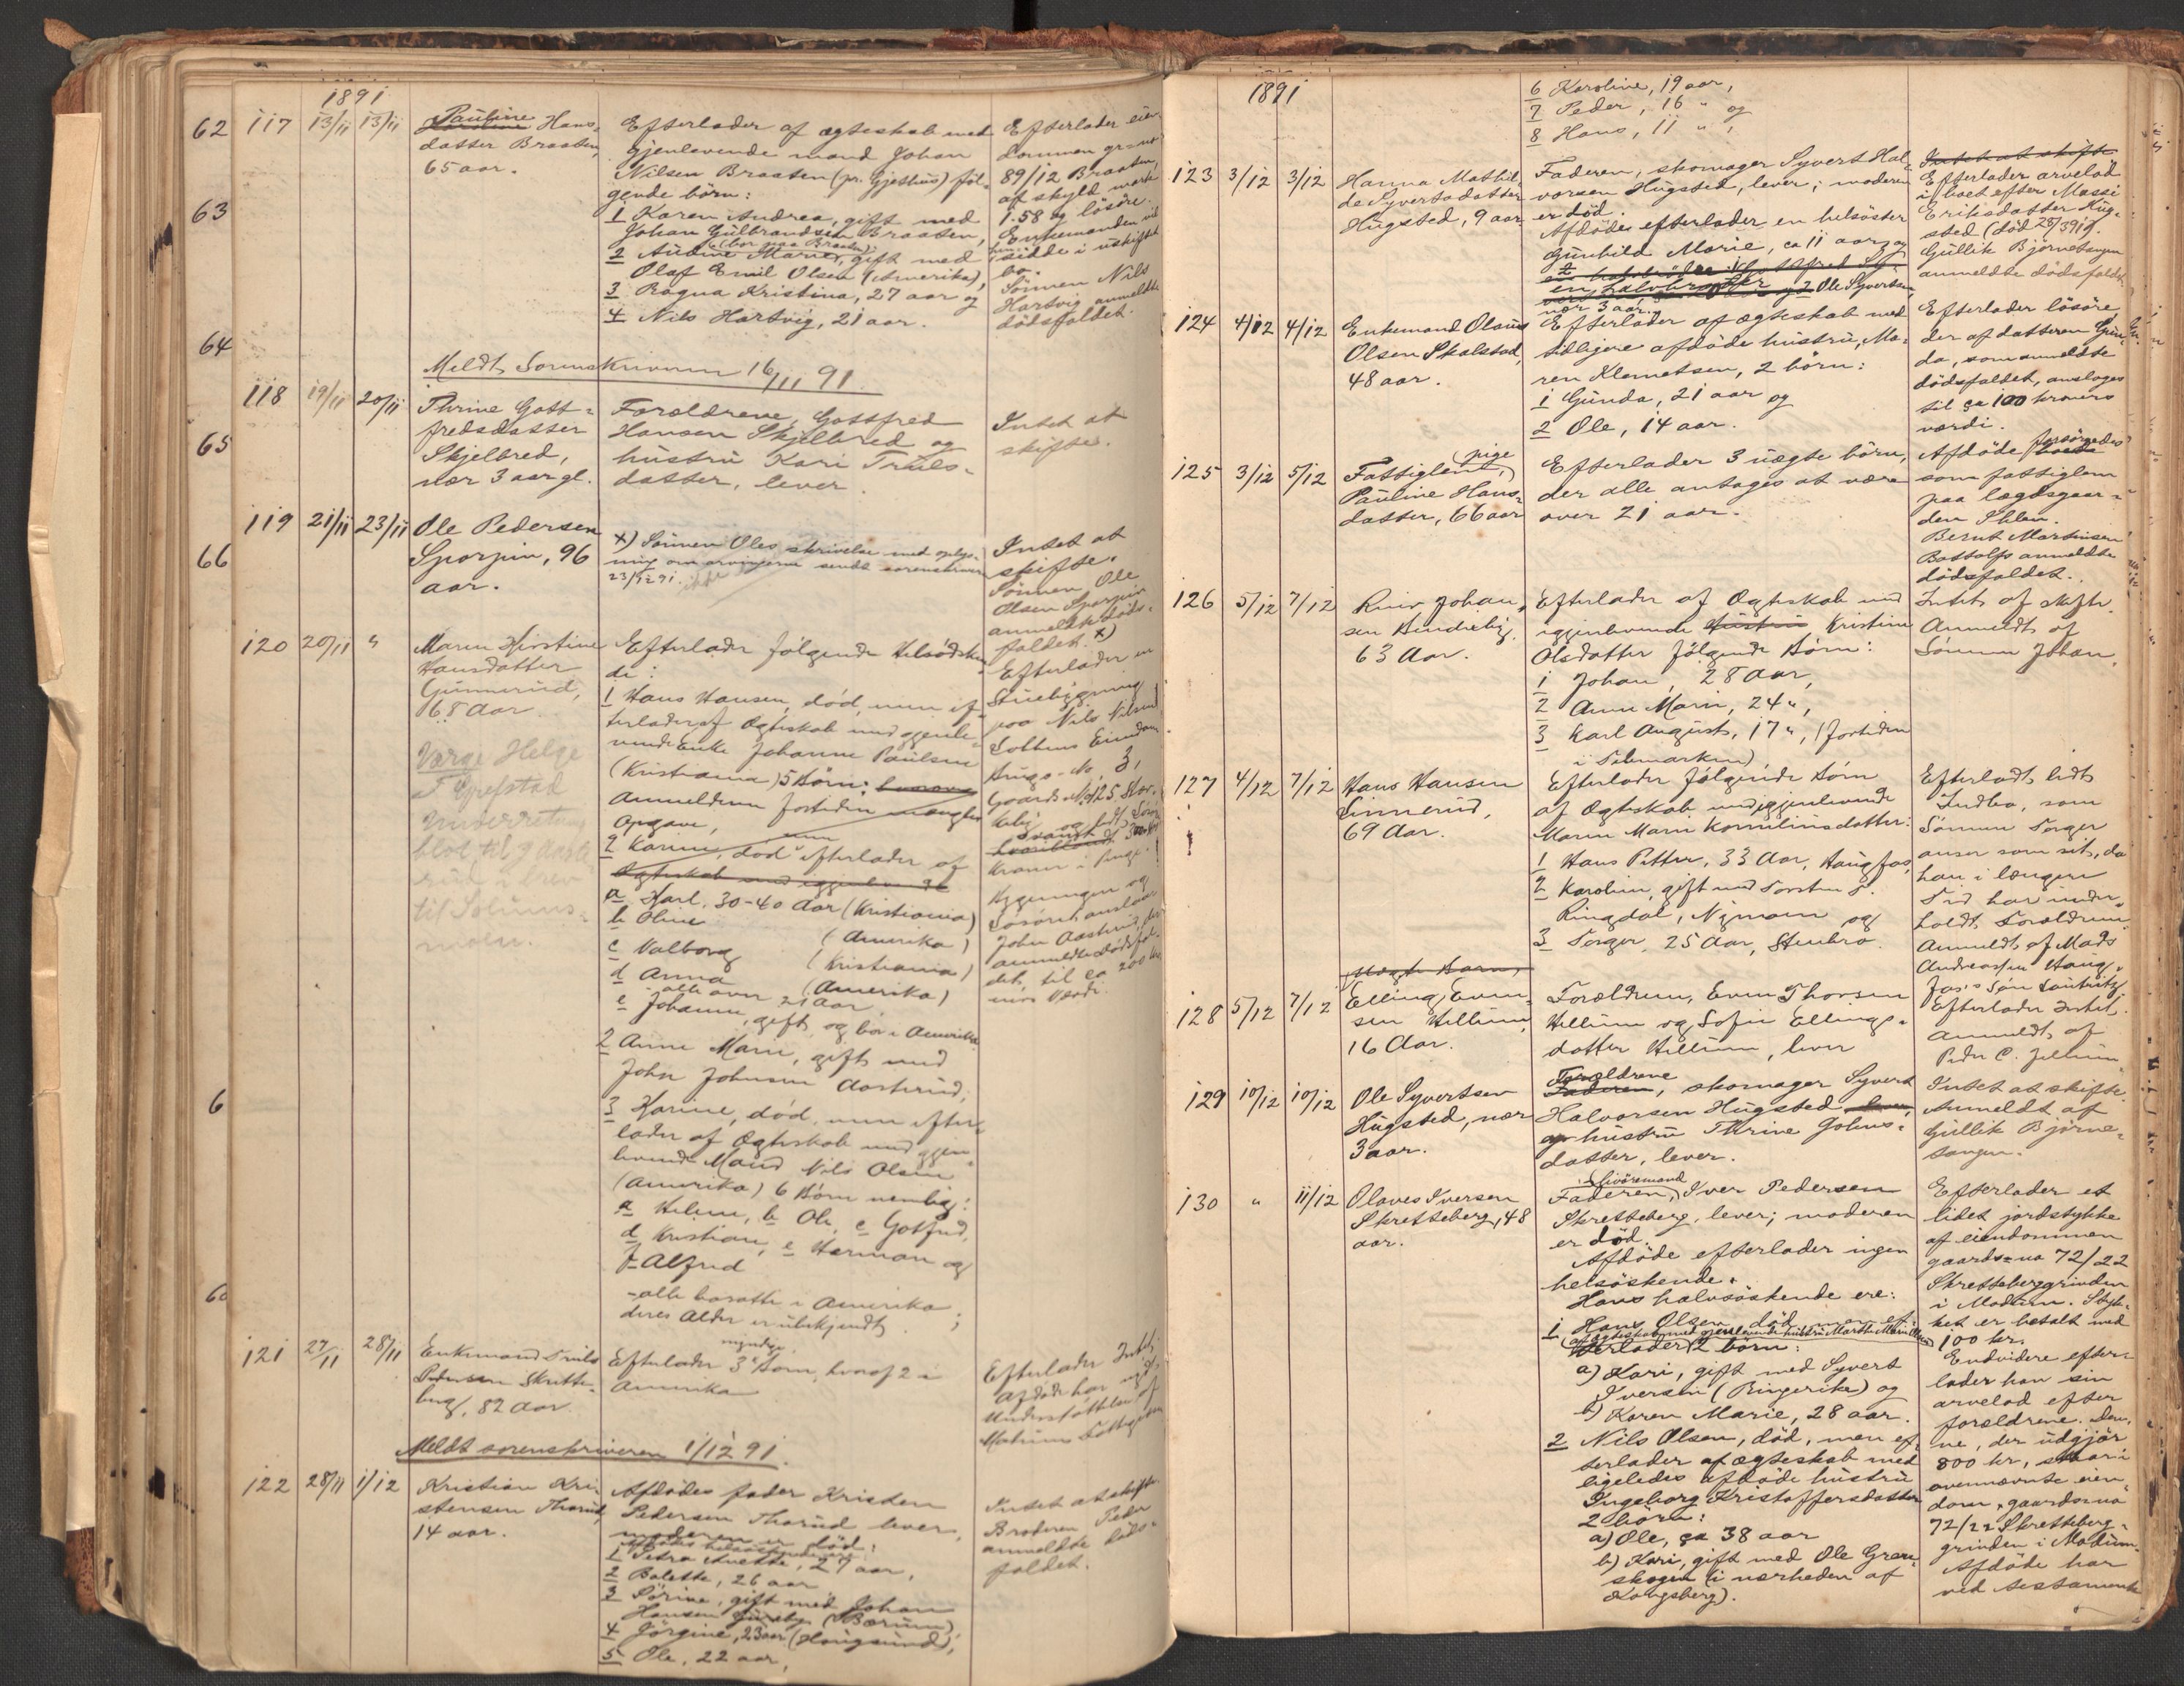 1891
62 117 13/11 13/11 Pauline Hans-
datter Braaten,
65 aar.
Efterlader af ægteskab med
gjenlevende mand Johan
Nilsen Braaten (pr. Gjethus) føl-
gende börn:
1 Karen Andrea, gift med
Johan Gulbrandsen Braaten,
(bor paa Braaten);
2 Audine Marie, gift med
Olaf Emil Olsen (Amerika),
3 Ragna Kristina, 27 aar og
4 Nils Hartvig, 21 aar.
Efterlader eien-
dommen gr=no
89/12 Braaten,
af skyld mark
1.58 og lösöre.
Enkemanden vil
sidde i uskiftet
bo.
Sönnen Nils
Hartvig anmeldte
dödsfaldet.
63
64
Meldt Sorenskriveren 16/11 91.
118 19/11 20/11 Thrine Gott-
fredsdatter
Skjelbred,
nær 3 aar gl.
Forældrene, Gottfred
Hansen Skjelbred og
hustru Kari Truls-
datter, lever.
Intet at
skifte.
65
119 21/11 23/11 Ole Pedersen
Sporpin, 96
aar.
x) Sönnen Oles skrivelse med oplys-
ning om arvingerne sendt sorenskriveren
23/12 91.
Intet at
skifte.
Sönnen Ole
Olsen Sporpin
anmeldte döds-
faldet. x)
66
120 20/11 " Maren Kirstine
Hansdatter
Gunnerud,
68 Aar.
Værge Helge
T Grefstad
Efterlader følgende Helsødsken-
de:
1 Hans Hansen, död, men ef-
terlader af Ægteskab med gjenle-
vende Enke Johanne Paulsen
(Kristiania) 5 Börn;
Anmelderen fortiden mangler
Opgave,
2 Karine, död men efterlader af
Ægteskab med igjenlevende
a Karl, 30-40 Aar (Kristiania)
b Oline (Amerika)
c Valborg (Kristiania)
d Anna (Amerika)
alle over 21 Aar
e Johanne, gift og bor i Amerika
2 Anne Marie, gift med
John Johnsen Aasterud,
3 Karine, död, men efter-
lader af Ægteskab med gjen-
levende Mand Nils Olsen
(Amerika) 6 Börn nemlig:
a Helene, b Ole, c Gotfred,
d Kristian, e Herman og
f Alfred
- alle bosatte i Amerika
deres Alder er ubekjendt;
Efterlader en
Stuebygning
paa Nils Nilsen
Eiendom
Brugs-No 3,
Gaards-No 125,
Kroner i Penge.
Bygningen og
Lösöret anslaar
John Aasterud, der
anmeldte Dödsfal-
det, til ca 200 Kro-
ners Værdi.
6
60
121 27/11 28/11 Enkemand Truls
Pedersen Skrette-
berg, 82 Aar.
myndige
Efterlader 3 Börn, hvoraf 2 i
Amerika
Efterlader Intet,
Afdøde har nydt
Understøttelse af
Modums Fattigvæsen
Meldt sorenskriveren 1/12 91.
122 28/11 1/12 Kristian Kri-
stensen Thorud,
14 aar.
Afdödes fader Kristen
Pedersen Thorud lever,
moderen er död:
Afdödes helsöskende ere:
1 Petra Anette, 27 aar,
2 Bolette, 26 aar
3 Sörine, gift med Johan
Hansen (Bærum),
4 Jörgine, 23 aar (Hougsund),
5 Ole, 22 aar,
Intet at skifte.
Broderen Peder
anmeldte döds-
faldet.
1891
6 Karoline, 19 aar,
7 Peder, 16 " og
8 Hans, 11 ",
123 3/12 3/12 Hanna Mathil-
de Syvertsdatter
Hugsted, 9 aar
Faderen, skomager Syvert Hal-
vorsen Hugsted, lever; moderen
er död.
Afdöde efterlader en helsöster
Gunhild Marie, ca 11 aar, og
en halvbroder Ole Syvertsen,
nær 3 aar.
Intet at skifte
Efterlader arvelod
i boet efter Massi
Eriksdatter Hug-
sted (död 28/3 91).
Gullik Björnetangen
anmeldte dödsfaldet.
124 4/12 4/12 Enkemand Olaus
Olsen Skalstad,
48 aar.
Efterlader af ægteskab med
tidligere afdöde hustru, Ma-
ren Klemetsen, 2 börn:
1 Gunda, 21 aar og
2 Ole, 14 aar.
Efterlader lösöre,
der af datteren Gun-
da, som anmeldte
dödsfaldet, ansloges
til ca 100 kroners
værdi.
125 3/12 5/12 Fattiglem, pige
Pauline Hans-
datter, 66 aar
Efterlader 3 uægte börn,
der alle antages at være
over 21 aar.
Afdöde forsörgedes
som fattiglem
paa lægdsgaar-
den Ihlen.
Bernt Martinsen
Bottolfs anmeldte
dödsfaldet.
126 5/12 7/12 Johan-
sen
63 Aar.
Efterlader af Ægteskab med
igjenlevende Hustru Kristine
Olsdatter følgende Børn:
1 Johan, 28 Aar,
2 Anne Marie, 24 ",
3 Karl August, 17 ", (fortiden
i Telemarken)
Intet at skifte.
Anmeldt af
Sønnen Johan.
127 4/12 7/12 Hans Hansen
Linnerud,
69 Aar.
Efterlader følgende Børn
af Ægteskab med igjenlevende
Maren Marie Korneliusdatter:
1 Hans Petter, 33 Aar, Haugfos,
2 Karoline, gift med Torsten T.
Ringdal, Nymoen og
3 Torger, 25 Aar, Stenbro.
Efterladt lidt
Indbo, som
Sønnen Torger
anser som sit, da
han i længere
Tid har under-
holdt Forældrene
Anmeldt af Mads
Andreassen Haug-
fos's Søn Lauritz
128 5/12 7/12 Uægte Barn,
Elling Even-
sen Hellum,
16 Aar.
Forældrene, Even Thorsen
Hellum og Sofie Ellings-
datter Hellum, lever
Efterlader Intet.
Anmeldt af
Peder C. Jellum
129 10/12 10/12 Ole Syvertsen
Hugsted, nær
3 aar.
Forældrene
Faderen, skomager Syvert
Halvorsen Hugsted lever,
og hustru Thrine Johns-
datter, lever.
Intet at skifte.
Anmeldt af
Gullik Björne-
tangen.
130 " 11/12 Olaves Iversen
Skretteberg, 48
aar.
livöremand
Faderen, Iver Pedersen
Skretteberg, lever; moderen
er död.
Afdöde efterlader ingen
helsöskende.
Hans halvsöskende ere:
1 Hans Olsen, död, men ef-
(af ægteskab med gjenlevende hustru Marthe Marie Olsen)
terlader 2 börn:
a) Kari, gift med Syvert
Iversen (Ringerike) og
b) Karen Marie, 28 aar.
2 Nils Olsen, död, men ef-
terlader af ægteskab med
ligeledes afdöde hustru
Ingeborg Kristoffersdatter
2 börn:
a) Ole, ca 38 aar
b) Kari, gift med Ole Gran-
skogen (i nærheden af
Kongsberg).
Efterlader et
lidet jordstykke
af eiendommen
gaards=no 72/22
Skretteberggrinden
i Modum. Styk-
ket er betalt med
100 kr.
Endvidere efter-
lader han sin
arvelod efter
forældrene. Den-
ne, der udgjör
800 kr, staar i
ovennævnte eien-
dom, gaards=no
72/22 Skretteberg-
grinden i Modum.
Afdöde har
ved testamente